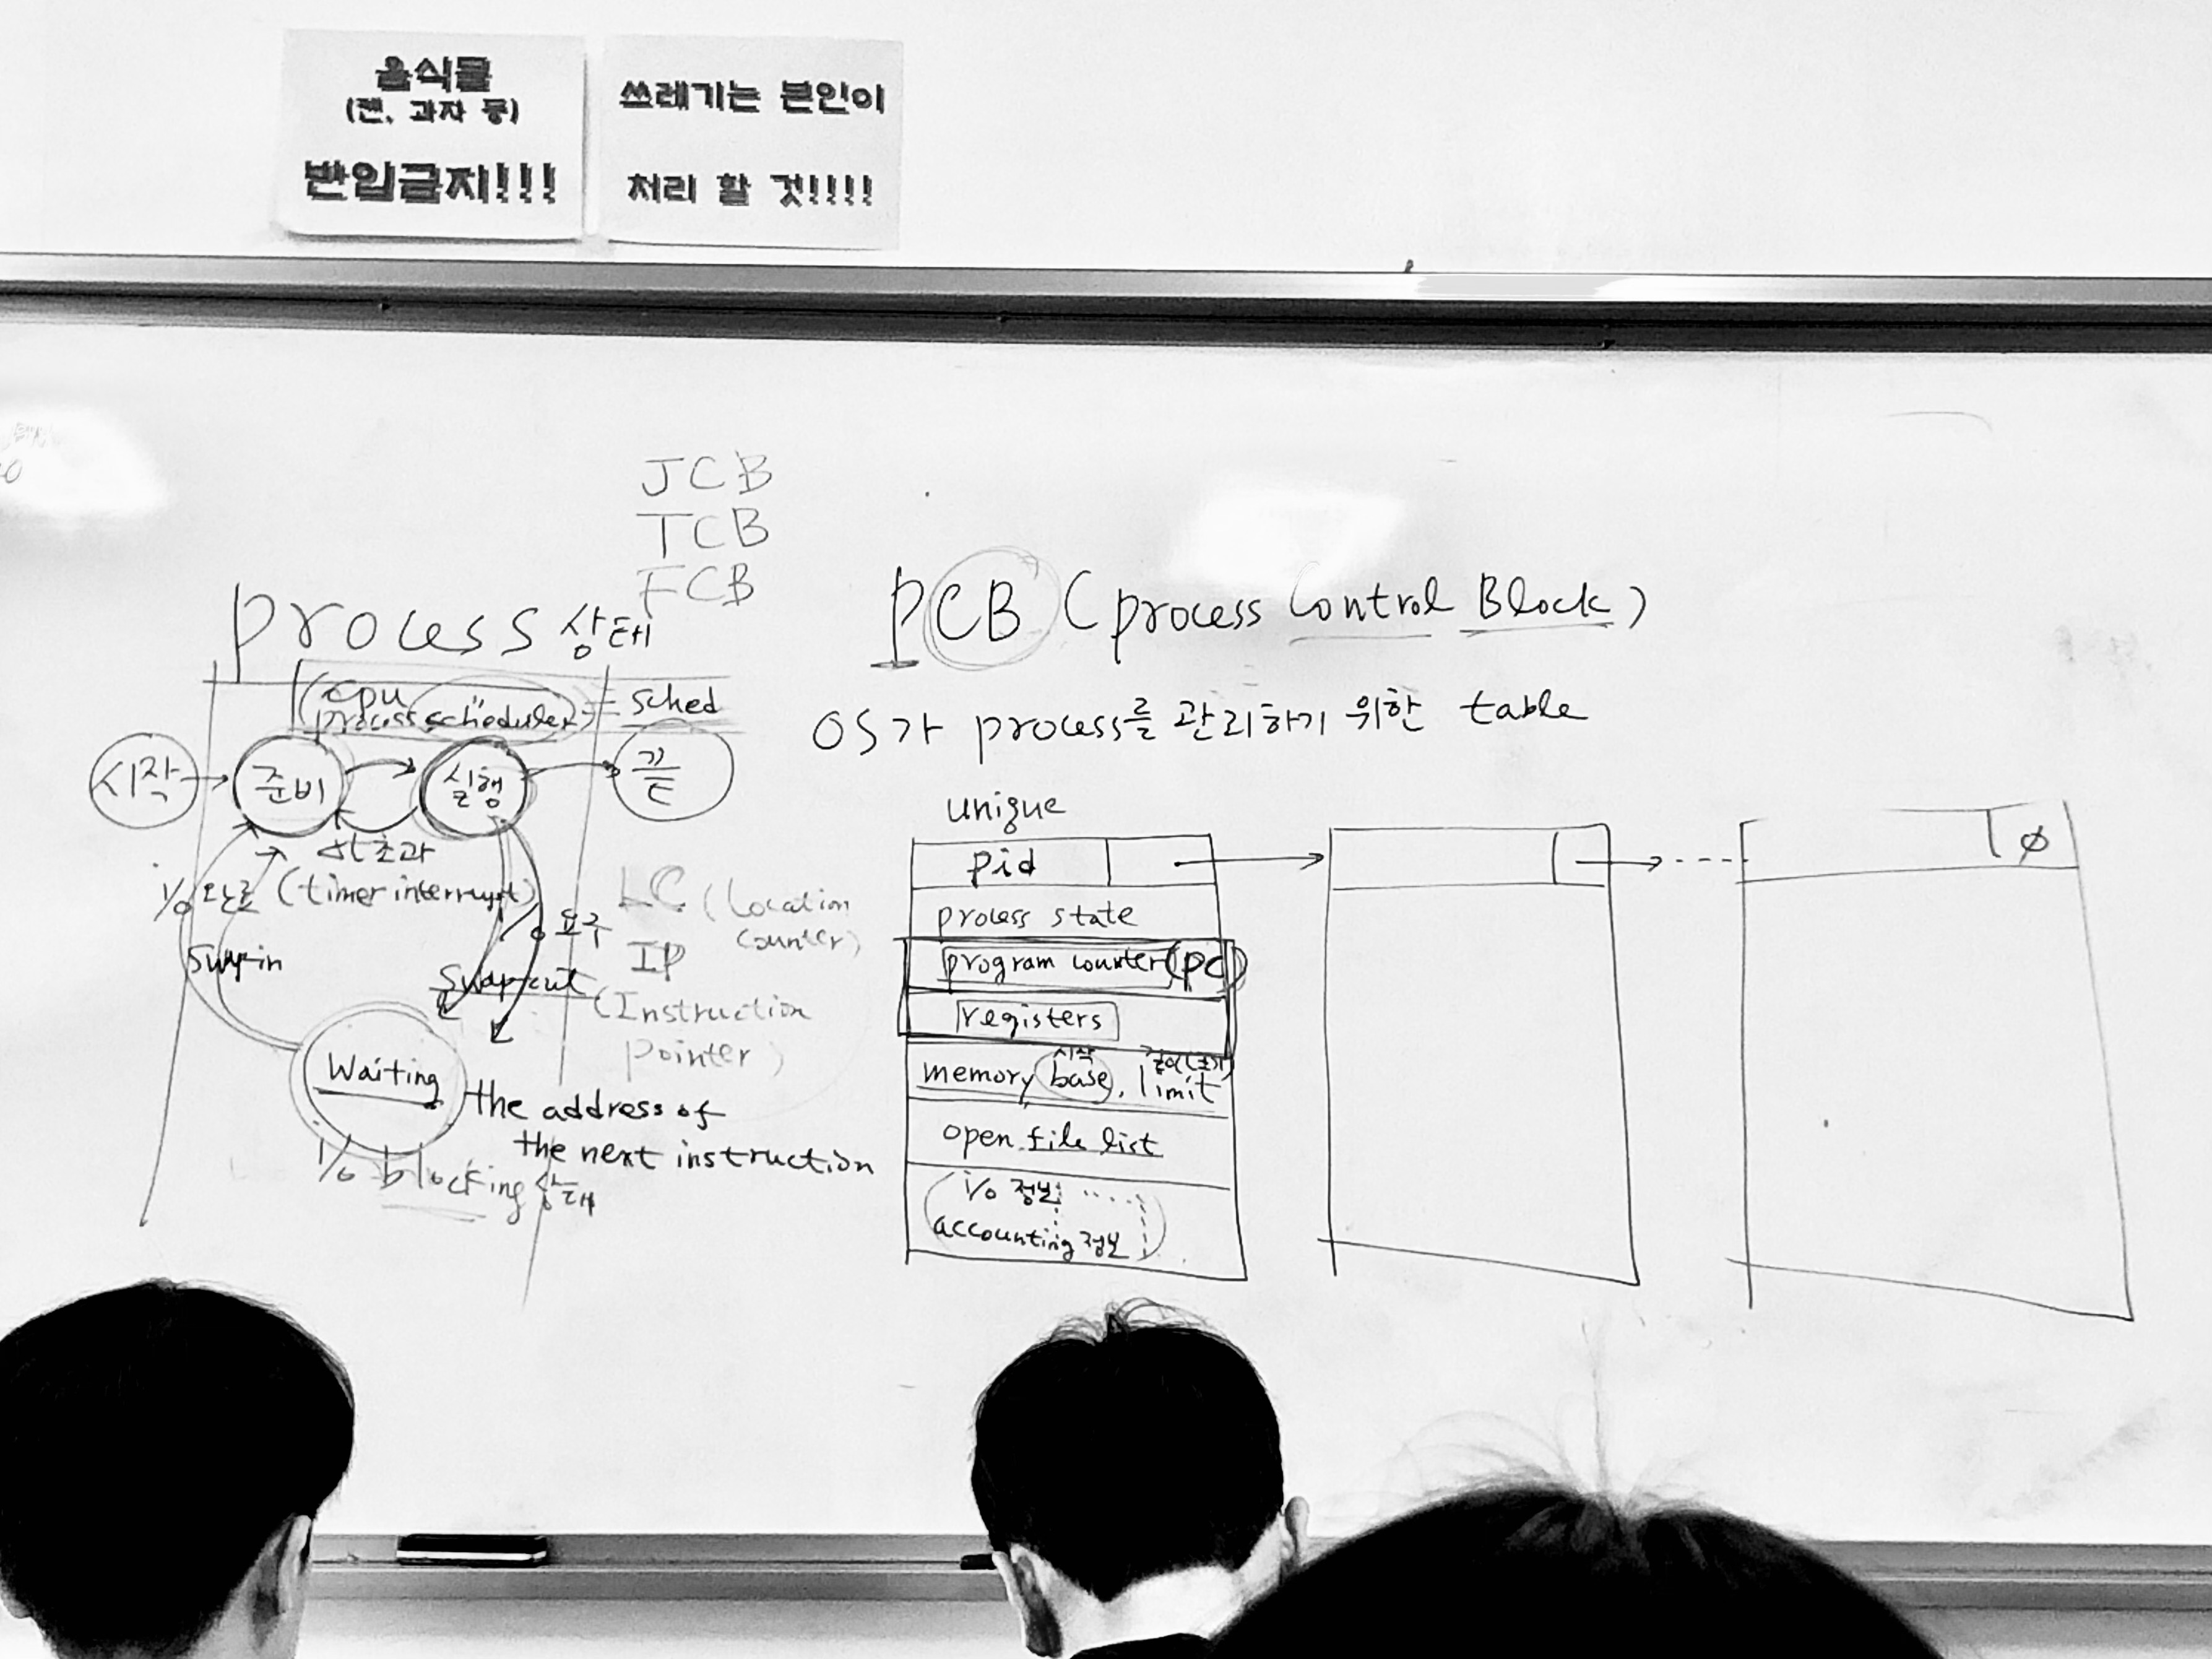 음식물
(캔, 과자 등)
반입금지!!!
쓰레기는 본인이
처리 할 것!!!!
JCB
TCB
FCB
process 상태
(cpu
process scheduler) = sched
시작
준비
실행
끝
Δt 초과
(timer interrupt)
i/o 완료
i/o 요구
swap in
swap out
Waiting
i/o blocking 상태
LC (Location
counter)
IP
(Instruction
pointer)
the address of
the next instruction
PCB (process Control Block)
OS가 process를 관리하기 위한 table
unique
pid
process state
program counter (pc)
registers
시작
memory base, limit
open file list
i/o 정보
accounting 정보
∅